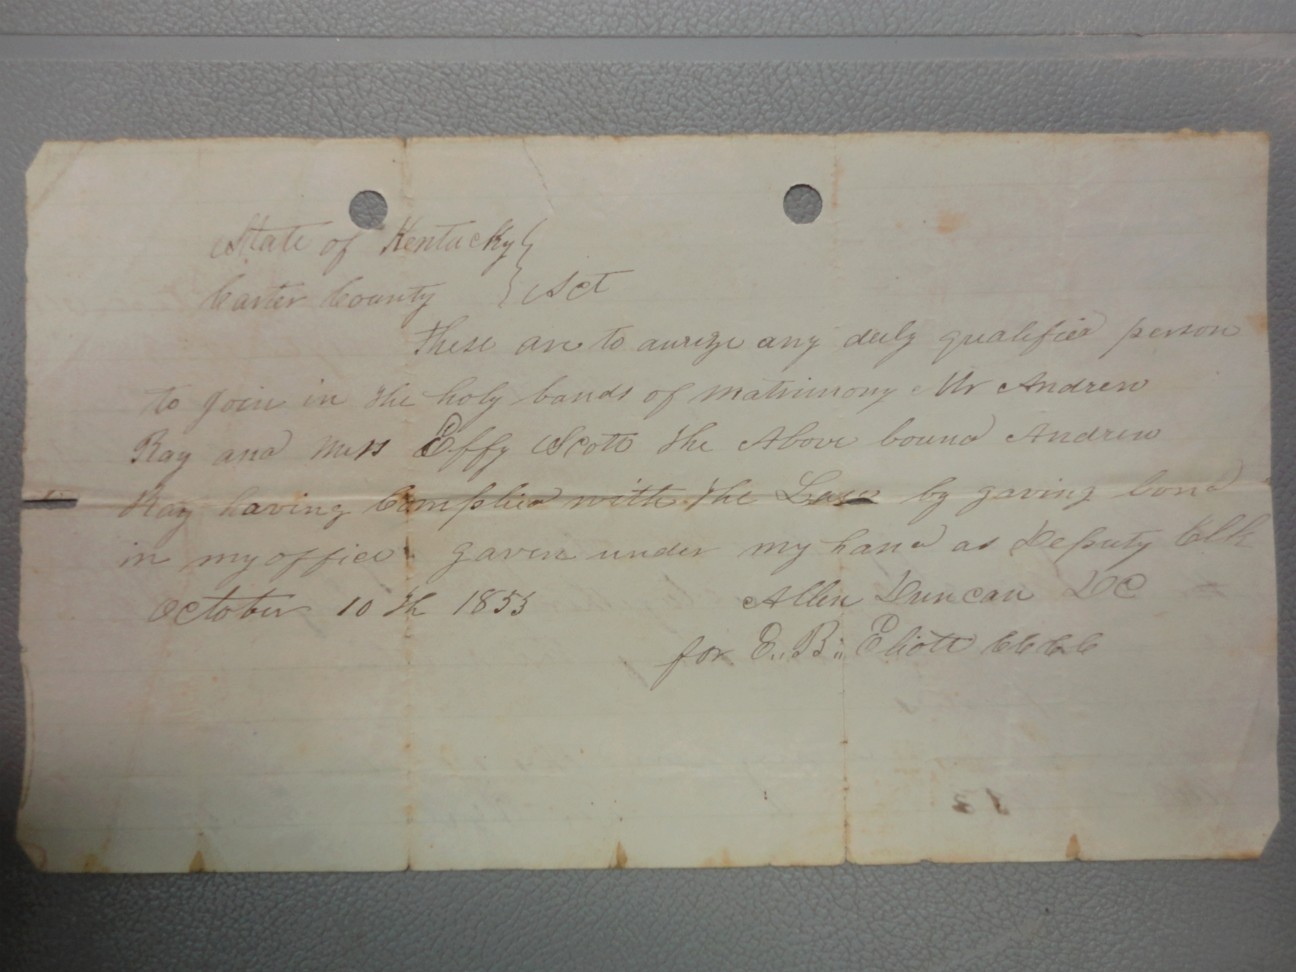 State of Kentucky }
Carter County } Sct
These are to aurize any duly qualified person
to join in the holy bands of matrimony Mr Andrew
Ray and Mrs Effy Scott the Above bound Andrew
Ray having Complied with the Law by gaving bond
in my office gaven under my hand as Deputy Clk
October 10 th 1853
Allen Duncan DC
for E. B. Eliott CCCC